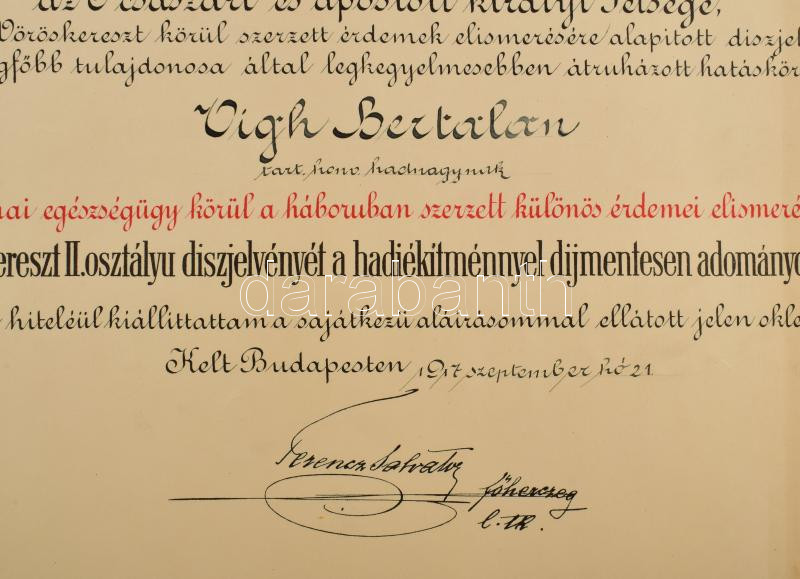 az Ő császári és apostoli királyi Felsége,
Vöröskereszt körül szerzett érdemek elismerésére alapitott diszjel
gfőbb tulajdonosa által legkegyelmesebben átruházott hatáskör
Vigh Bertalan
tart. honv. hadnagynak
nai egészségügy körül a háboruban szerzett különös érdemei elismeré
ereszt II. osztályu diszjelvényét a hadiékítménnyel dijmentesen adományo
darabanth
hiteléül kiállittattam a sajátkezü aláirásommal ellátott jelen okle
Kelt Budapesten 1917 szeptember hó 21
Ferencz Salvator
főherczeg